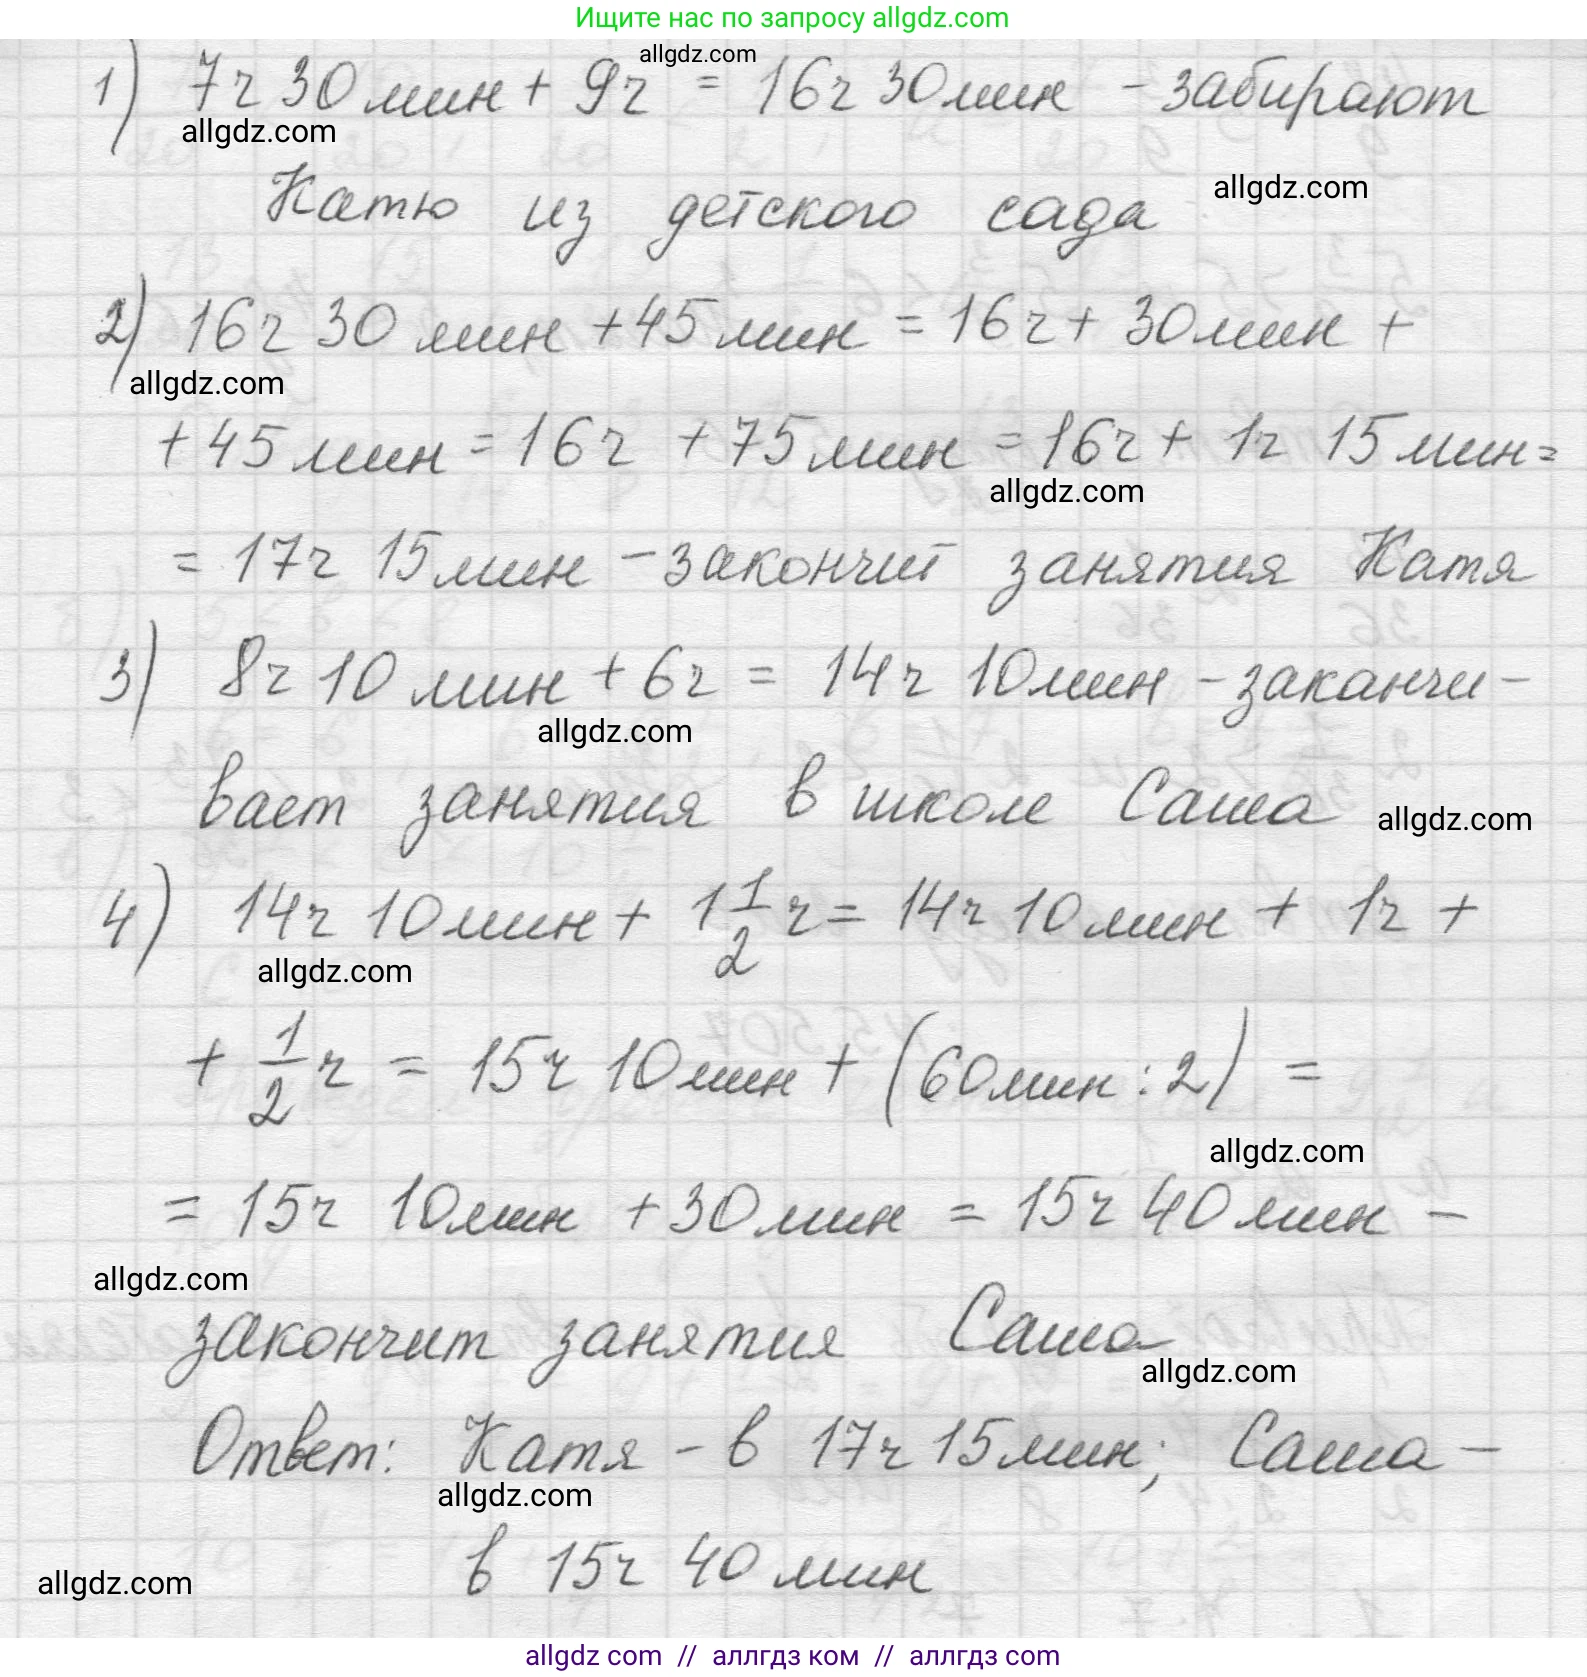 Ищите нас по запросу allgdz.com
allgdz.com
1) 7ч 30 мин + 9ч = 16ч 30 мин - забирают
allgdz.com
Катю из детского сада
allgdz.com
2) 16ч 30 мин + 45 мин = 16ч + 30 мин +
allgdz.com
+ 45 мин = 16ч + 75 мин = 16ч + 1ч 15 мин =
allgdz.com
= 17ч 15 мин - закончит занятия Катя
3) 8ч 10 мин + 6ч = 14ч 10 мин - заканчи-
allgdz.com
вает занятия в школе Саша
allgdz.com
4) 14ч 10 мин + 1 1/2 ч = 14ч 10 мин + 1ч +
allgdz.com
+ 1/2 ч = 15ч 10 мин + (60 мин : 2) =
allgdz.com
= 15ч 10 мин + 30 мин = 15ч 40 мин -
allgdz.com
закончит занятия Саша
allgdz.com
Ответ: Катя - в 17ч 15 мин; Саша -
allgdz.com
в 15ч 40 мин
allgdz.com
allgdz com // аллгдз ком // аллгдз com